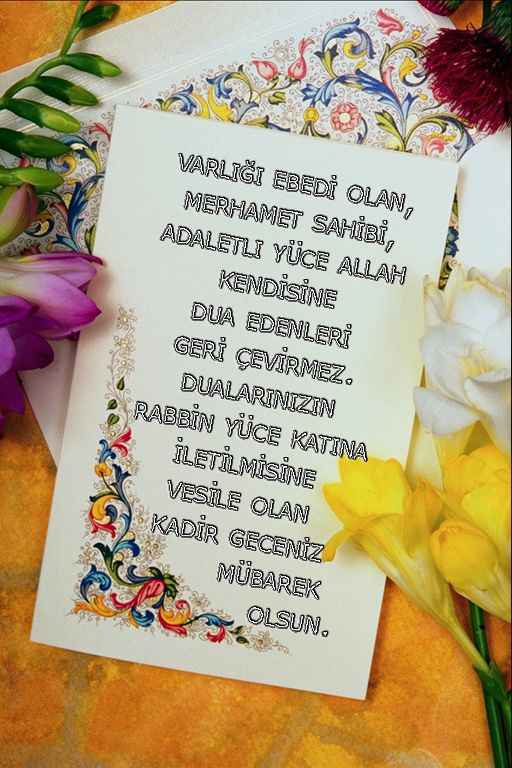 VARLIĞI EBEDİ OLAN,
MERHAMET SAHİBİ,
ADALETLI YÜCE ALLAH
KENDİSİNE
DUA EDENLERİ
GERİ ÇEVİRMEZ.
DUALARINIZIN
RABBİN YÜCE KATINA
İLETİLMİSİNE
VESİLE OLAN
KADİR GECENİZ
MÜBAREK
OLSUN.